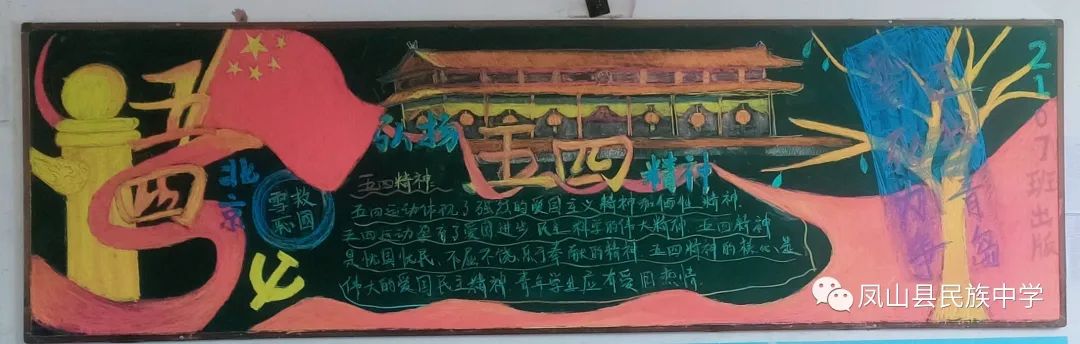 五四
北京
救國
雪恥
弘扬
五四
精神
五四精神
五四运动体现了强烈的爱国主义精神和牺牲精神.
五四运动孕育了爱国进步民主科学的伟大精神 五四精神
是忧国忧民、不屈不饶、乐于奉献的精神 五四精神的核心是
伟大的爱国民主精神 青年学生应有爱国热情.
青岛
2107班出版
凤山县民族中学